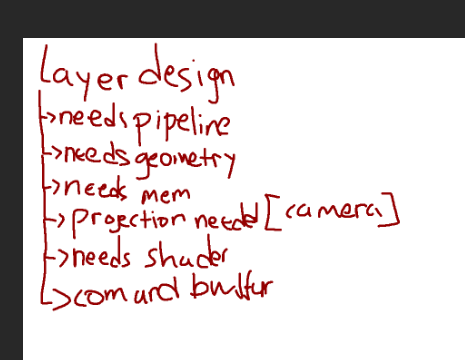 Layer design
needs pipeline
needs geometry
needs mem
projection needed [camera]
needs shader
comand buffur